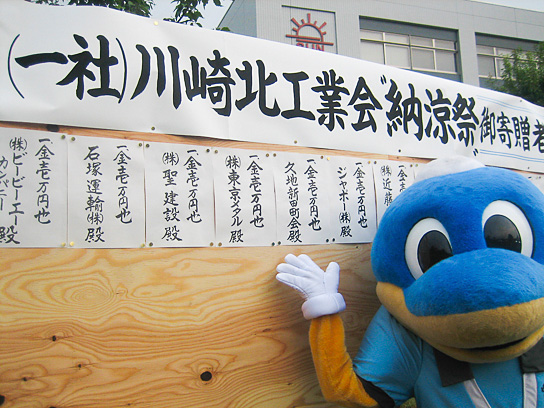 (一社)川崎北工業会"納涼祭"御寄贈者
SUN
一金壱万円也
(株)近藤
一金壱万円也
ジャポー(株)殿
一金壱万円也
久地新田町会殿
一金壱万円也
(株)東京メタル殿
一金壱万円也
(株)聖建設殿
一金壱万円也
石塚運輸(株)殿
一金壱万円也
(株)ピーピーエーカンパニー殿